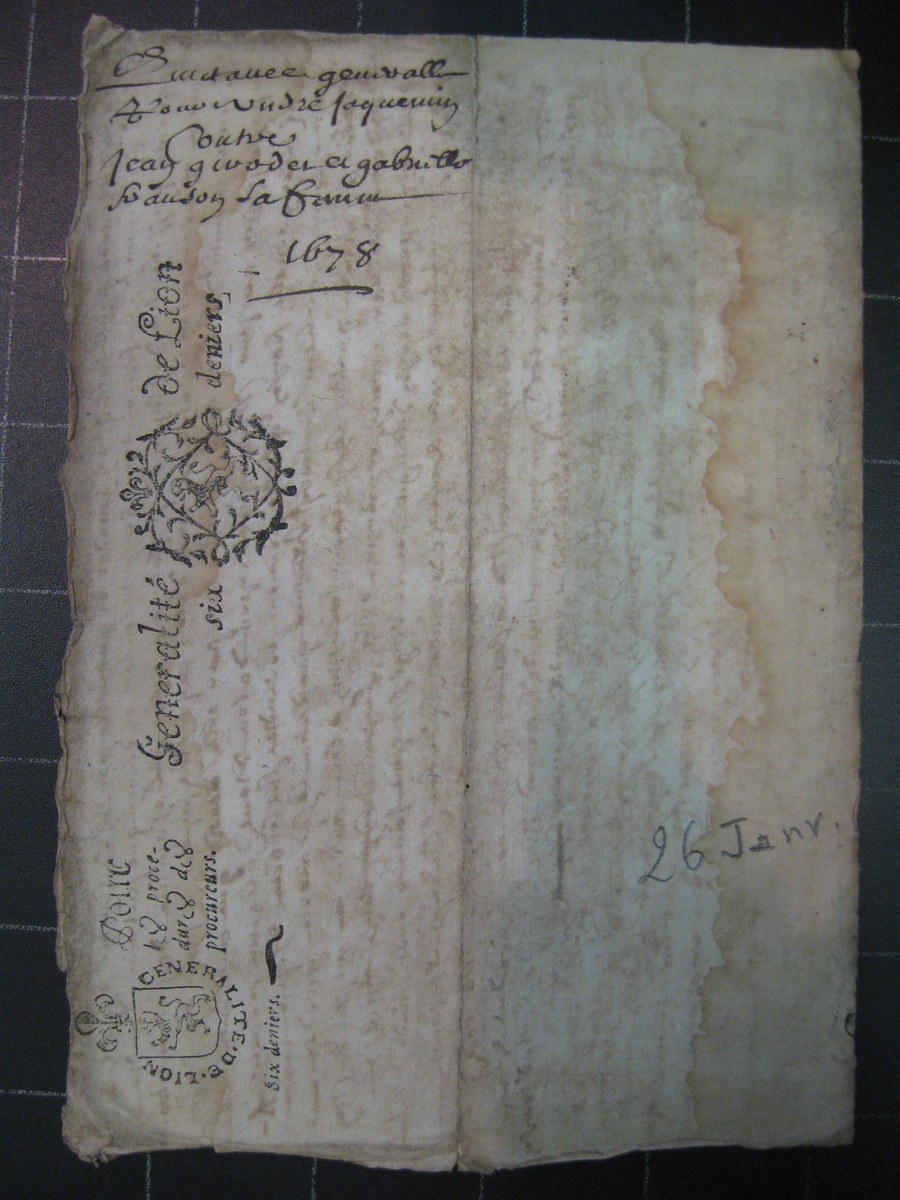 Quictance generalle
Pour Andre Jaquemin
Contre
Jean girodet et gabrielle
sa femme
1678
Generalité de Lion
six deniers
Pour
les proce-
dures des
procureurs.
GENERALITE·DE·LION
six deniers.
26 Janv.